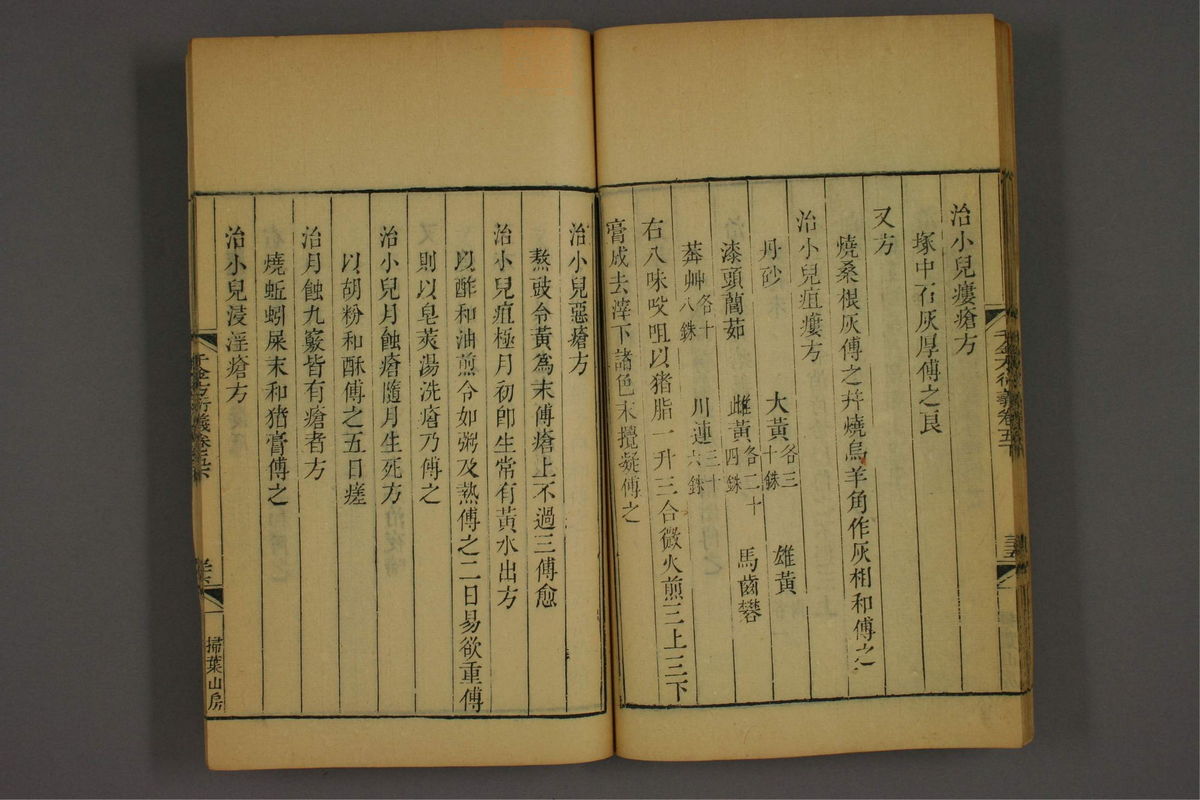 治小兒瘻瘡方
塚中石灰厚傅之良
又方
燒桑根灰傅之并燒烏羊角作灰相和傅之
治小兒疽瘻方
丹砂 大黃各三十銖 雄黃
漆頭䕡茹 雌黃各二十四銖 馬齒礬
莽艸各十八銖 川連三十六銖
右八味㕮咀以猪脂一升三合微火煎三上三下
膏成去滓下諸色末攪凝傅之
千金方衍義卷五下
治小兒惡瘡方
熬豉令黃為末傅瘡上不過三傅愈
治小兒疽極月初卽生常有黃水出方
以酢和油煎令如粥及熱傅之二日易欲重傅
則以皂莢湯洗瘡乃傅之
治小兒月蝕瘡隨月生死方
以胡粉和酥傅之五日瘥
治月蝕九竅皆有瘡者方
燒蚯蚓屎末和猪膏傅之
治小兒浸淫瘡方
千金方衍義卷五下
掃葉山房